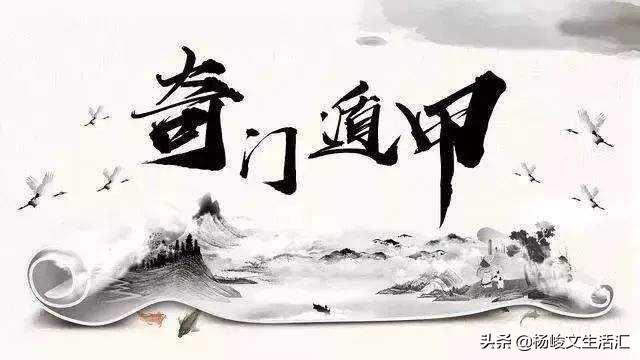 奇门遁甲
头条 @杨峻文生活汇